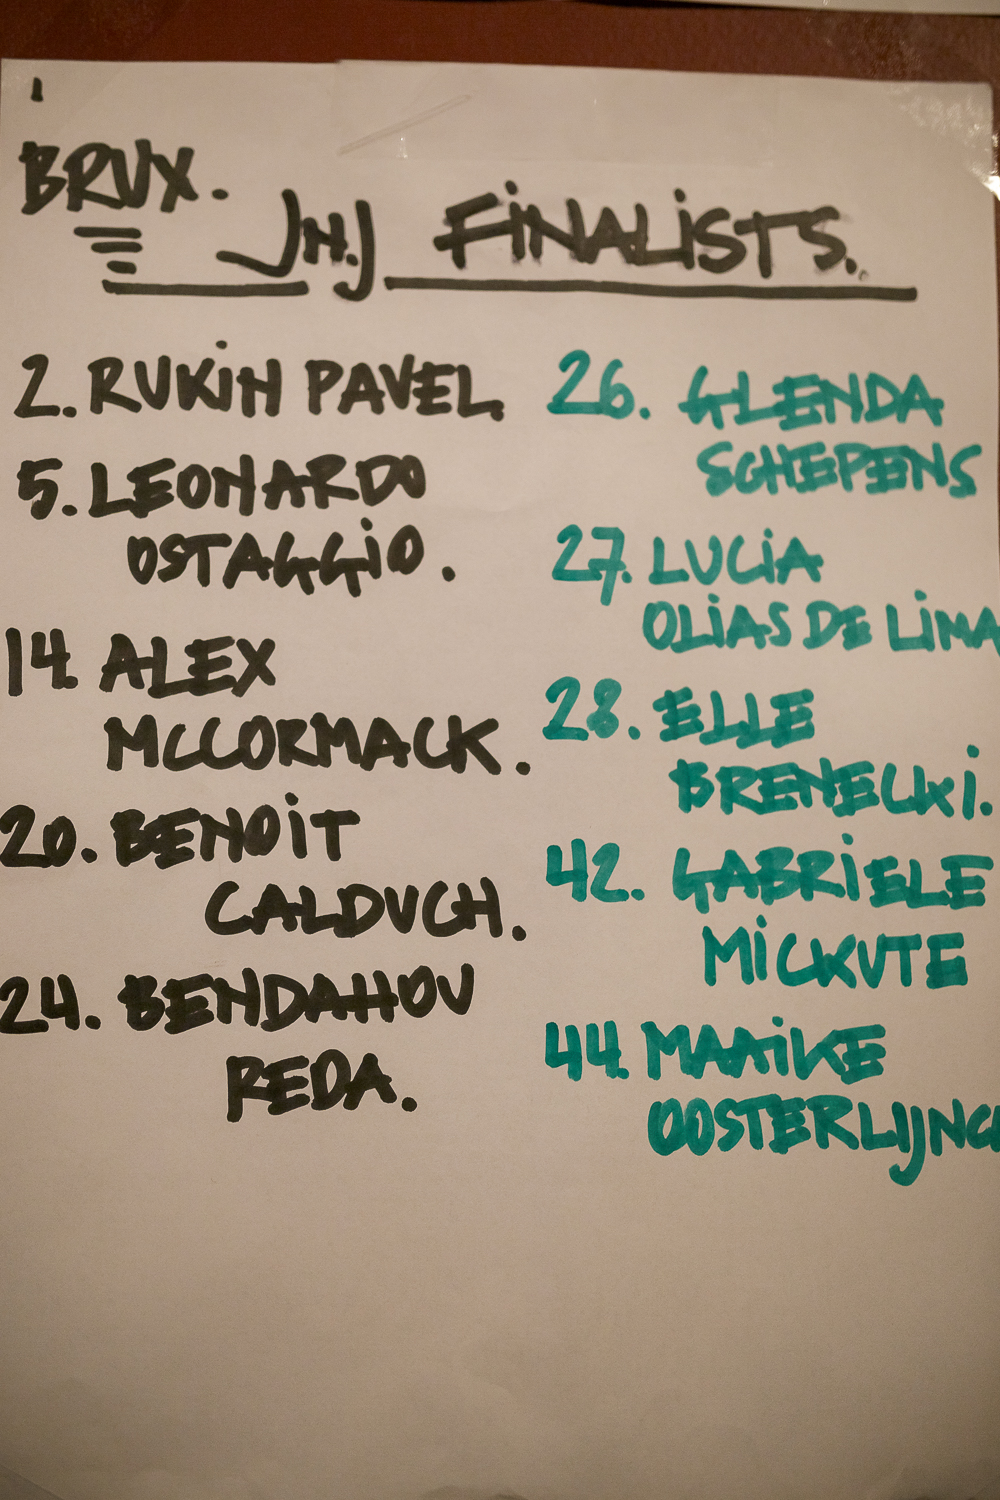 BRUX.
JNJ FINALISTS.
2. RUKIN PAVEL.
5. LEONARDO
OSTAGGIO.
14. ALEX
MCCORMACK.
20. BENOIT
CALDUCH.
24. BENDAHOU
REDA.
26. GLENDA
SCHEPENS
27. LUCIA
OLIAS DE LIMA
28. ELLE
BRENECKI.
42. GABRIELE
MICKUTE
44. MAAIKE